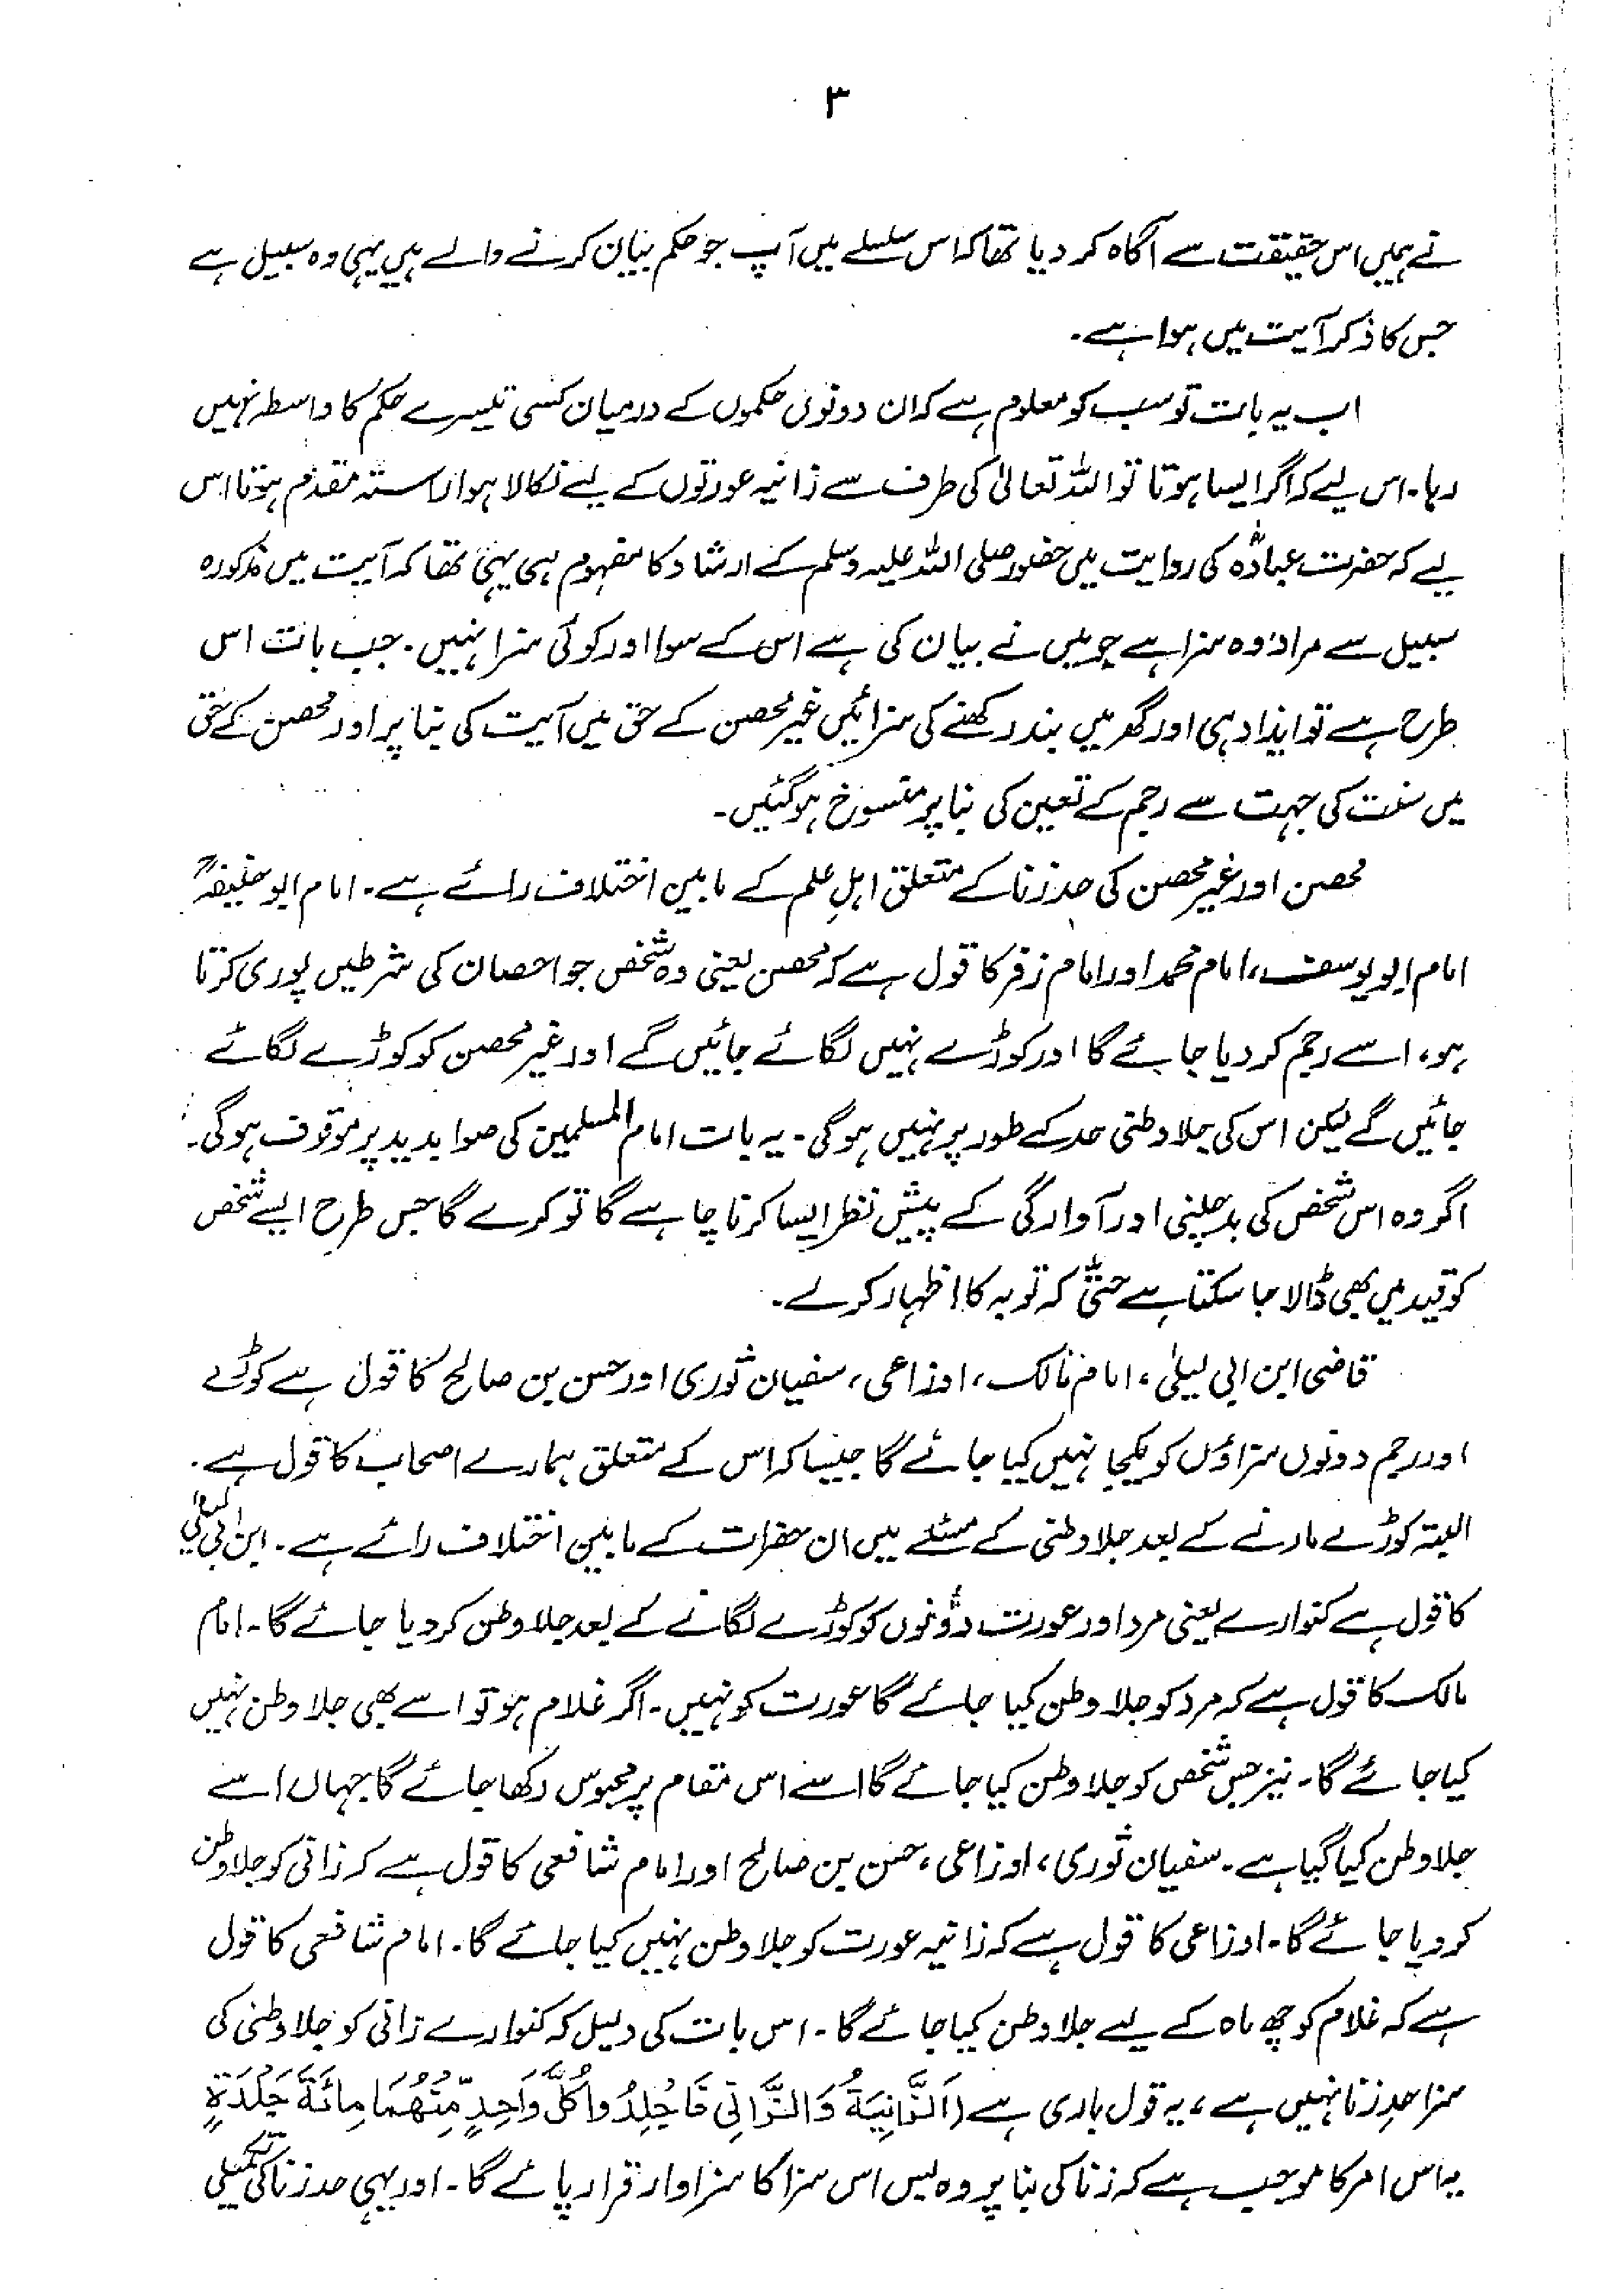 ۳
نے ہمیں اس حقیقت سے آگاہ کر دیا تھا کہ اس سلسلے میں آپ جو حکم بیان کرنے والے ہیں یہی وہ سبیل ہے
جس کا ذکر آیت میں ہوا ہے۔
اب یہ بات تو سب کو معلوم ہے کہ ان دونوں حکموں کے درمیان کسی تیسرے حکم کا واسطہ نہیں
رہا۔ اس لیے کہ اگر ایسا ہوتا تو اللہ تعالیٰ کی طرف سے زانیہ عورتوں کے لیے نکالا ہوا راستہ مقدم ہوتا اس
لیے کہ حضرت عبادہؓ کی روایت میں حضور صلی اللہ علیہ وسلم کے ارشاد کا مفہوم ہی یہی تھا کہ آیت میں مذکورہ
سبیل سے مراد وہ سزا ہے جو میں نے بیان کی ہے اس کے سوا اور کوئی سزا نہیں۔ جب بات اس
طرح ہے تو ایذا دہی اور گھر میں بند رکھنے کی سزائیں غیر محصن کے حق میں آیت کی بنا پر اور محصن کے حق
میں سنت کی جہت سے رجم کے تعین کی بنا پر منسوخ ہو گئیں۔
محصن اور غیر محصن کی حد زنا کے متعلق اہلِ علم کے مابین اختلاف رائے ہے۔ امام ابو حنیفہؒ
امام ابو یوسف، امام محمد اور امام زفر کا قول ہے کہ محصن یعنی وہ شخص جو احصان کی شرطیں پوری کرتا
ہو، اسے رجم کر دیا جائے گا اور کوڑے نہیں لگائے جائیں گے اور غیر محصن کو کوڑے لگائے
جائیں گے لیکن اس کی جلاوطنی حد کے طور پر نہیں ہوگی۔ یہ بات امام المسلمین کی صوابدید پر موقوف ہوگی۔
اگر وہ اس شخص کی بدچلنی اور آوارگی کے پیش نظر ایسا کرنا چاہے گا تو کرے گا جس طرح ایسے شخص
کو قید میں بھی ڈالا جا سکتا ہے حتّٰی کہ توبہ کا اظہار کرلے۔
قاضی ابن ابی لیلیٰ، امام مالک، اوزاعی، سفیان ثوری اور حسن بن صالح کا قول ہے کوڑے
اور رجم دونوں سزاؤں کو یکجا نہیں کیا جائے گا جیسا کہ اس کے متعلق ہمارے اصحاب کا قول ہے۔
البتہ کوڑے مارنے کے بعد جلاوطنی کے مسئلے میں ان حضرات کے مابین اختلاف رائے ہے۔ ابن ابی لیلیٰ
کا قول ہے کنوارے یعنی مرد اور عورت دونوں کو کوڑے لگانے کے بعد جلاوطن کر دیا جائے گا۔ امام
مالک کا قول ہے کہ مرد کو جلاوطن کیا جائے گا عورت کو نہیں۔ اگر غلام ہو تو اسے بھی جلاوطن نہیں
کیا جائے گا۔ نیز جس شخص کو جلاوطن کیا جائے گا اسے اس مقام پر محبوس رکھا جائے گا جہاں اسے
جلاوطن کیا گیا ہے۔ سفیان ثوری، اوزاعی، حسن بن صالح اور امام شافعی کا قول ہے کہ زانی کو جلاوطن
کر دیا جائے گا۔ اوزاعی کا قول ہے کہ زانیہ عورت کو جلاوطن نہیں کیا جائے گا۔ امام شافعی کا قول
ہے کہ غلام کو چھ ماہ کے لیے جلاوطن کیا جائے گا۔ اس بات کی دلیل کہ کنوارے زانی کو جلاوطنی کی
سزا حدِ زنا نہیں ہے، یہ قول باری ہے (اَلزَّانِيَةُ وَالزَّانِي فَاجْلِدُوا كُلَّ وَاحِدٍ مِّنْهُمَا مِائَةَ جَلْدَةٍ
یہ اس امر کا موجب ہے کہ زنا کی بنا پر وہ بس اس سزا کا سزاوار قرار پائے گا۔ اور یہی حد زنا کی تکمیلی